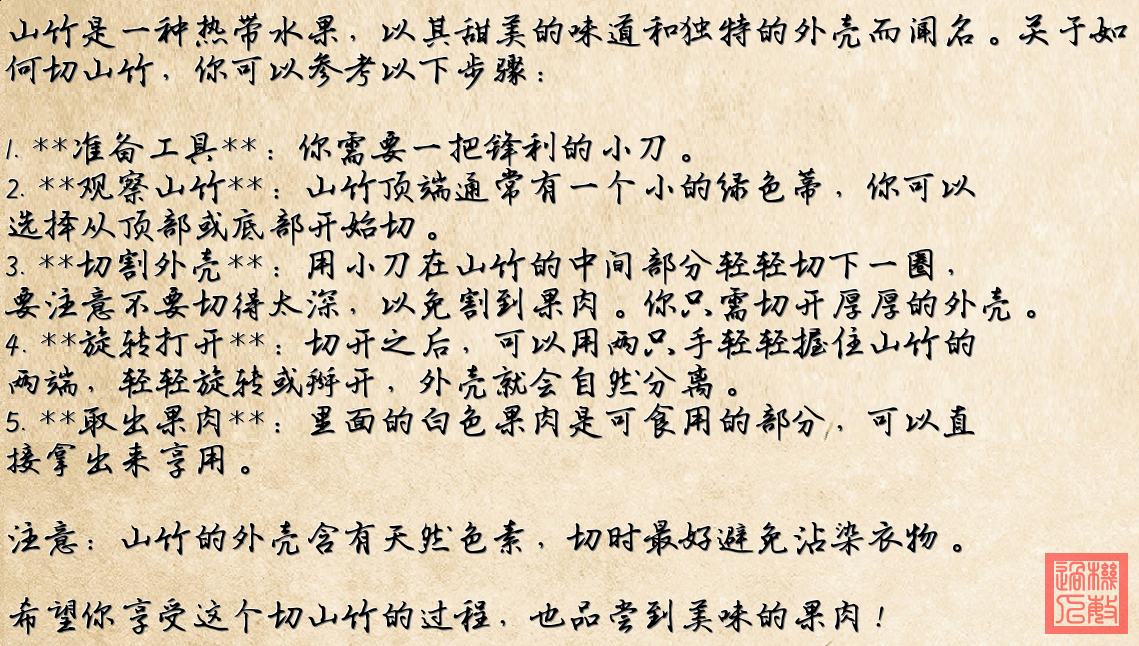 山竹是一种热带水果，以其甜美的味道和独特的外壳而闻名。关于如
何切山竹，你可以参考以下步骤：
1. **准备工具**：你需要一把锋利的小刀。
2. **观察山竹**：山竹顶端通常有一个小的绿色蒂，你可以
选择从顶部或底部开始切。
3. **切割外壳**：用小刀在山竹的中间部分轻轻切下一圈，
要注意不要切得太深，以免割到果肉。你只需切开厚厚的外壳。
4. **旋转打开**：切开之后，可以用两只手轻轻握住山竹的
两端，轻轻旋转或掰开，外壳就会自然分离。
5. **取出果肉**：里面的白色果肉是可食用的部分，可以直
接拿出来享用。
注意：山竹的外壳含有天然色素，切时最好避免沾染衣物。
希望你享受这个切山竹的过程，也品尝到美味的果肉！